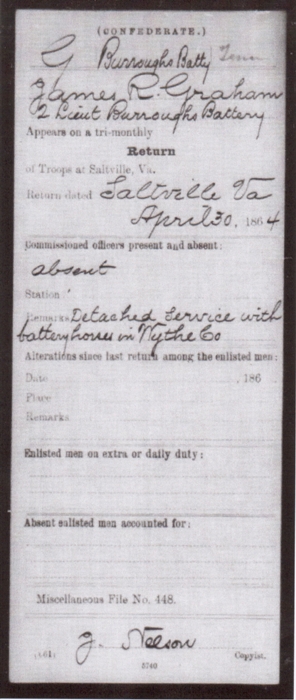 (CONFEDERATE.)
G Burroughs Batty Tenn
James R. Graham
2 Lieut Burroughs Battery
Appears on a tri-monthly
Return
of Troops at Saltville, Va.
Return dated Saltville Va
April 30, 1864
Commissioned officers present and absent:
absent
Station
Remarks Detached Service with
battery horses in Wythe Co
Alterations since last return among the enlisted men:
Date , 186
Place
Remarks
Enlisted men on extra or daily duty:
Absent enlisted men accounted for:
Miscellaneous File No. 448.
J. Nelson
(661) Copyist.